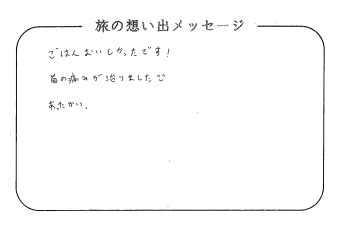 旅の想い出メッセージ
ごはんおいしかったです！
首の痛みが治りました
あたたかい。